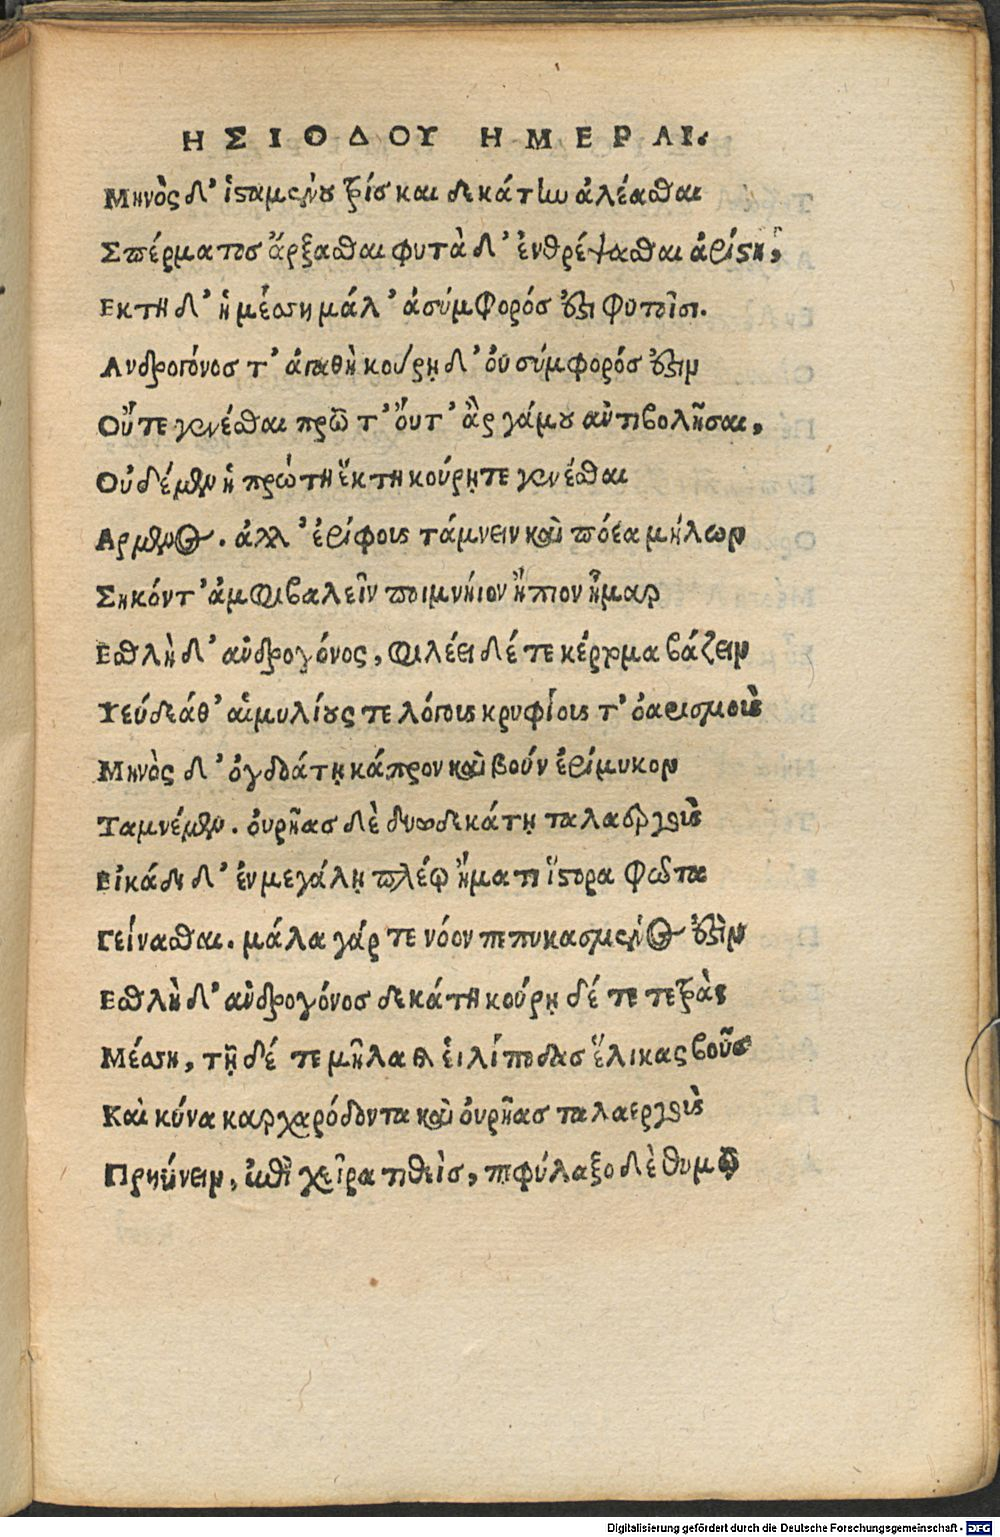 ΗΣΙΟΔΟΥ ΗΜΕΡΑΙ.
Μηνὸς δ' ἱσαμένου τρίσ και δεκάτην ἀλέασθαι
Σπέρματοσ ἄρξασθαι φυτὰ δ' ἐνθρέψασθαι ἀρίστη,
Εκτη δ' ἡ μέσση μάλ' ἀσύμφορόσ ἐστι φυτοῖσι.
Ανδρογόνοσ τ' ἀγαθὴ κούρῃ δ' οὐ σύμφορόσ ἐστιν
Οὔτε γενέσθαι πρῶτ' οὔτ' ἂρ γάμου ἀντιβολῆσαι,
Οὐδέ μὲν ἡ πρώτη ἕκτη κούρῃ τε γενέσθαι
Αρμενος. ἀλλ' ἐρίφοις τάμνειν καὶ πόεα μήλων
Σηκόντ' ἀμφιβαλεῖν ποιμνήιον ἤπιον ἦμαρ
Εσθλὴ δ' ἀνδρογόνος, φιλέει δέ τε κέρτομα βάζειν
Ψεύδεάθ' αἱμυλίους τε λόγοις κρυφίοις τ' ὀαρισμοὺς
Μηνὸς δ' ὀγδοάτῃ κάπρον καὶ βούν ἐρίμυκον
Ταμνέμεν. ὀυρῆασ δὲ δυωδεκάτῃ ταλαεργοὺς
Εἰκάδι δ' ἐν μεγάλῃ πλέῳ ἤματι ἵστορα φῶτα
Γείνασθαι. μάλα γάρ τε νόον πεπυκασμένος ἐστὶν
Εσθλὴ δ' ἀνδρογόνοσ δεκάτη κούρῃ δέ τε τετρὰς
Μέσση, τῇ δέ τε μῆλα καὶ εἰλίποδασ ἕλικας βοῦσ
Καὶ κύνα καρχαρόδοντα καὶ ὀυρῆασ ταλαεργοὺς
Πρηύνειν, ἐπὶ χεῖρα τιθεὶσ, πεφύλαξο δὲ θυμῷ
Digitalisierung gefördert durch die Deutsche Forschungsgemeinschaft - DFG